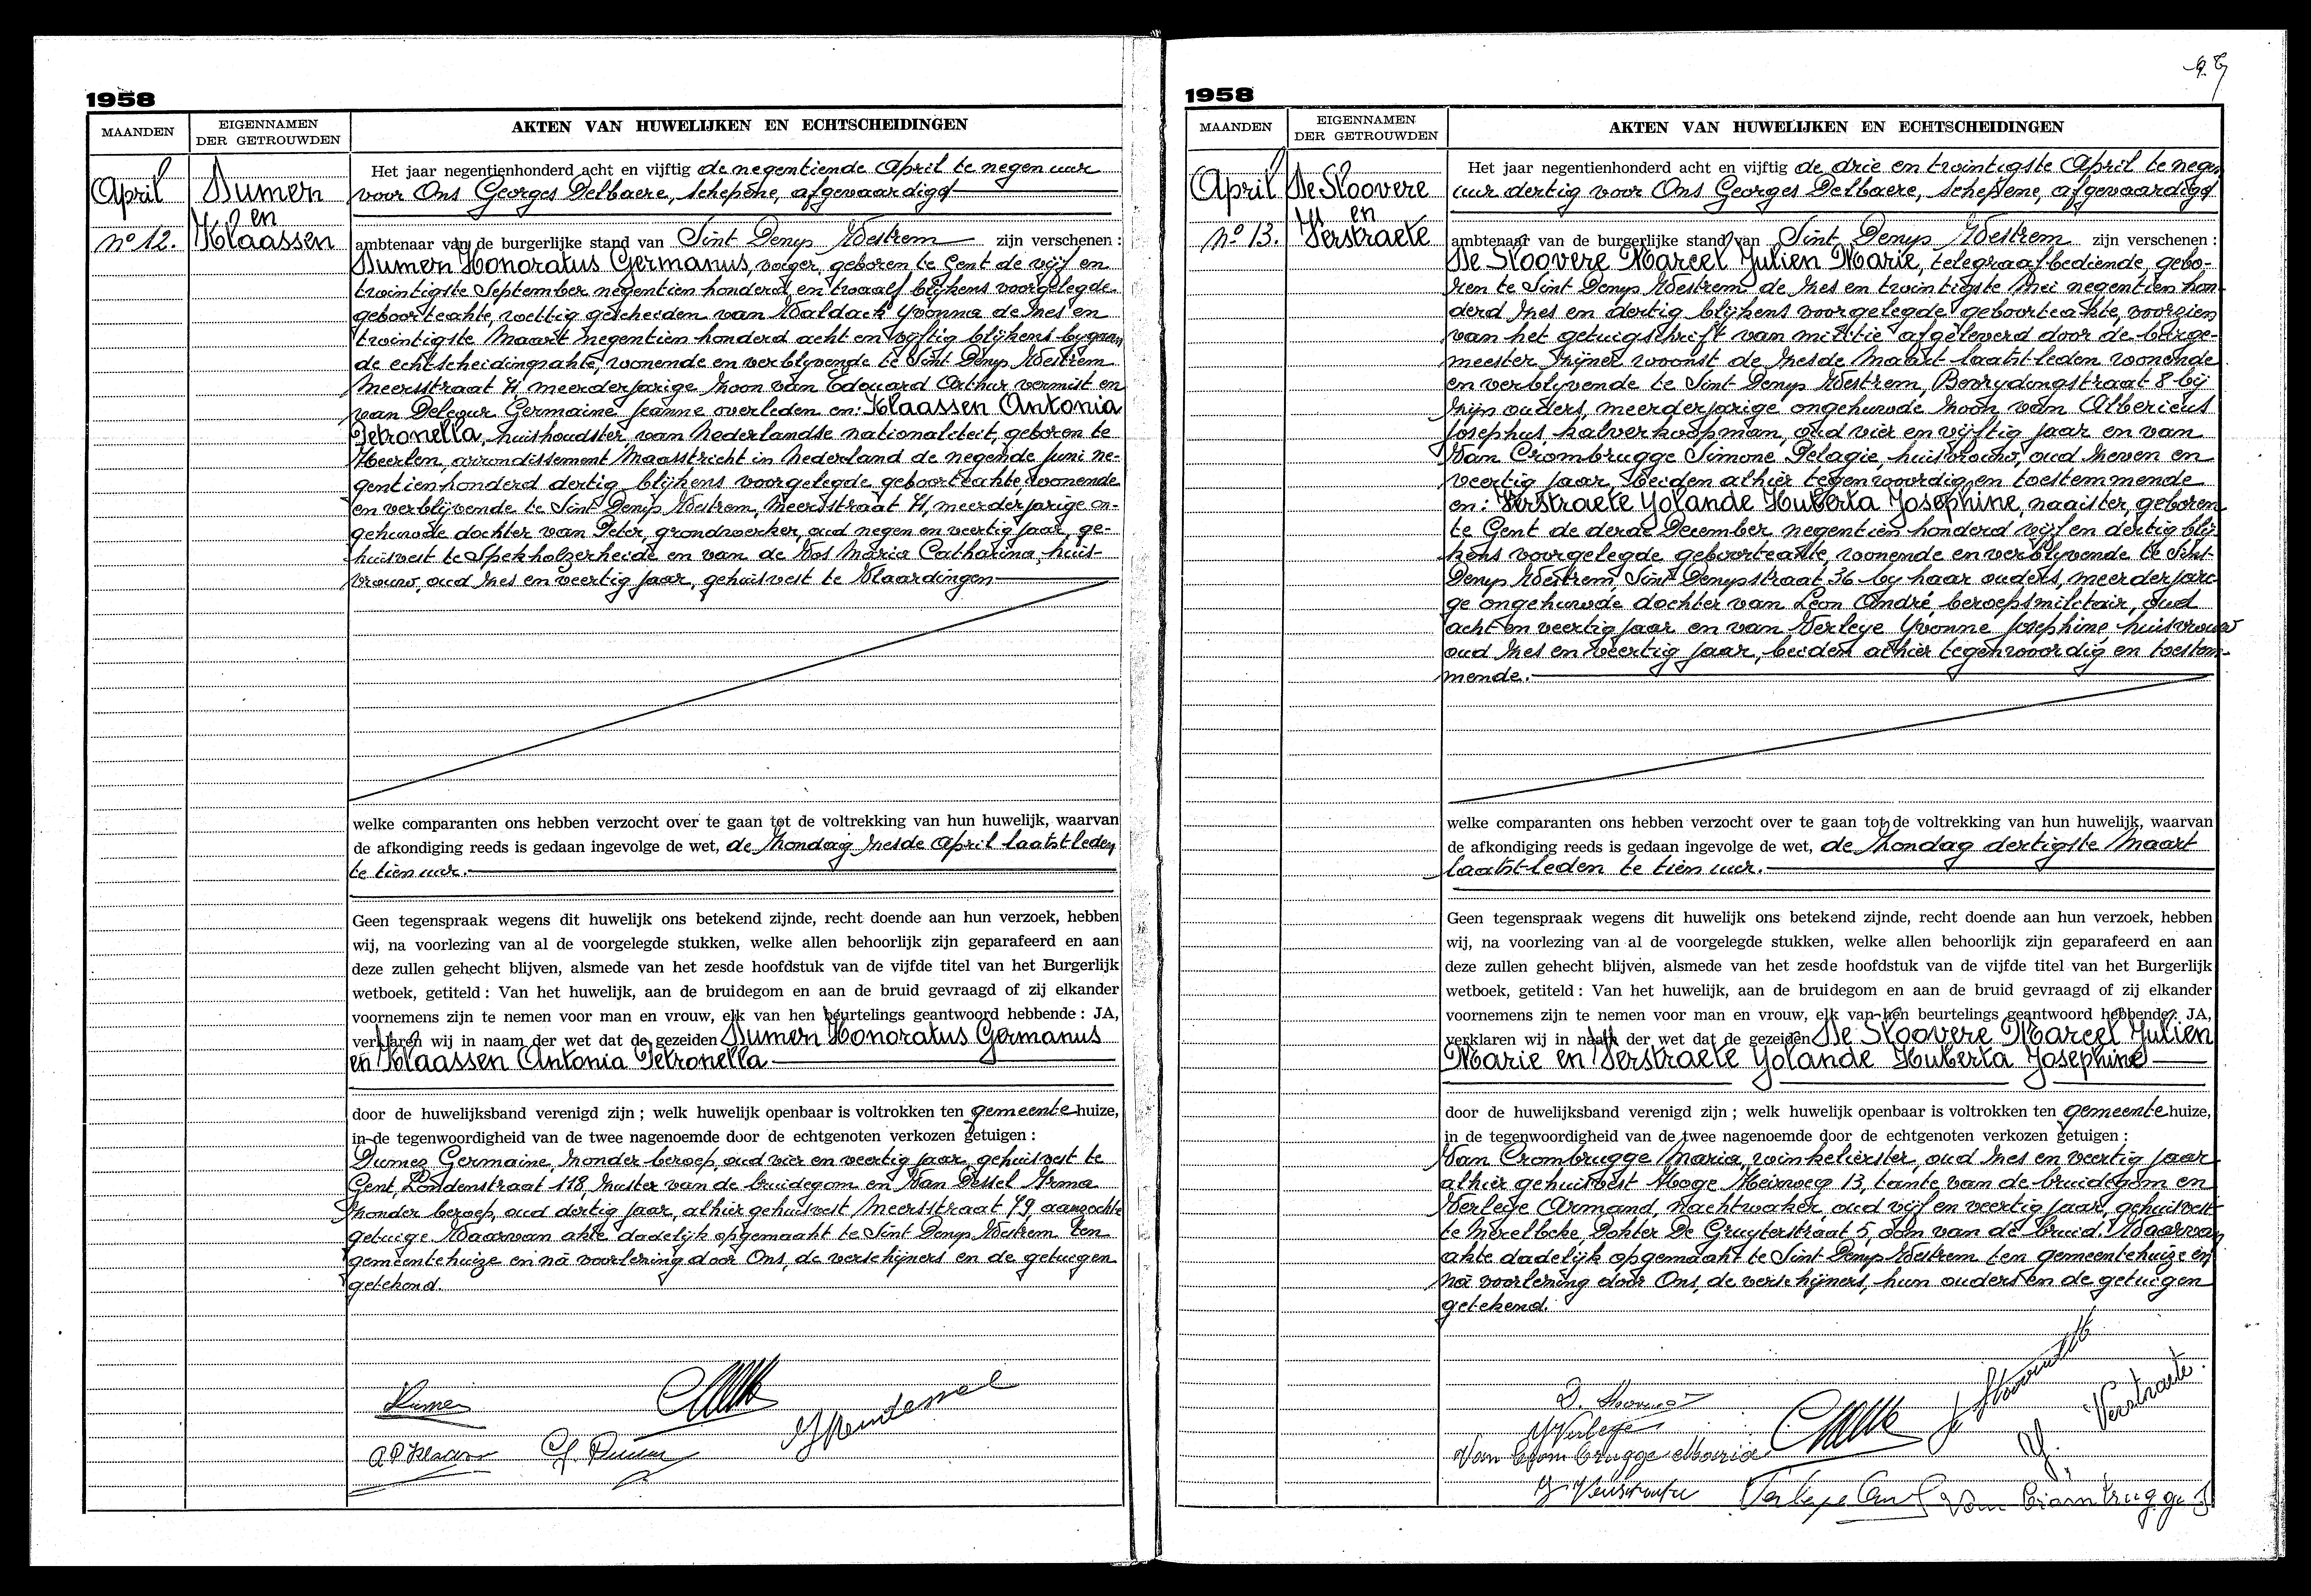 1958
MAANDEN
EIGENNAMEN
DER GETROUWDEN
AKTEN VAN HUWELIJKEN EN ECHTSCHEIDINGEN
April
no 12.
Dumen
en
Klaassen
Het jaar negentienhonderd acht en vijftig de negentiende April te negen uur
voor Ons Georges Delbaere, schepene, afgevaardigd
ambtenaar van de burgerlijke stand van Sint Denys Westrem zijn verschenen :
Honoratus Germanus, geboren te Gent de vijf en
twintigste September negentien honderd en twaalf blijkens voorgelegde
geboorteakte, wettig gescheiden van Waldack Yvonna de zes en
twintigste Maart negentien honderd acht en vijftig blijkens
de echtscheidingsakte, wonende en verblyvende te Sint Denys Westrem
Meersstraat 71, meerderjarige zoon van Edouard Arthur vermist en
van Germaine Jeanne overleden en: Klaassen Antonia
Petronella, huishoudster, van Nederlandse nationaliteit, geboren te
Heerlen, arrondissement Maastricht in Nederland de negende Juni ne-
gentienhonderd dertig blijkens voorgelegde geboorteakte, wonende
en verblijvende te Sint Denys Westrem, Meersstraat 71, meerderjarige on-
gehuwde dochter van Peter, grondwerker, oud negen en veertig jaar, ge-
huisvest te Spekholzerheide en van de Vos Maria Catharina, huis-
vrouw, oud zes en veertig jaar, gehuisvest te Vlaardingen
welke comparanten ons hebben verzocht over te gaan tot de voltrekking van hun huwelijk, waarvan
de afkondiging reeds is gedaan ingevolge de wet, de Zondag zesde April laatst-leden
te tien uur.
Geen tegenspraak wegens dit huwelijk ons betekend zijnde, recht doende aan hun verzoek, hebben
wij, na voorlezing van al de voorgelegde stukken, welke allen behoorlijk zijn geparafeerd en aan
deze zullen gehecht blijven, alsmede van het zesde hoofdstuk van de vijfde titel van het Burgerlijk
wetboek, getiteld : Van het huwelijk, aan de bruidegom en aan de bruid gevraagd of zij elkander
voornemens zijn te nemen voor man en vrouw, elk van hen beurtelings geantwoord hebbende : JA,
verklaren wij in naam der wet dat de gezeiden Honoratus Germanus
en Klaassen Antonia Petronella
door de huwelijksband verenigd zijn ; welk huwelijk openbaar is voltrokken ten gemeentehuize,
in de tegenwoordigheid van de twee nagenoemde door de echtgenoten verkozen getuigen :
Germaine, zonder beroep, oud vier en veertig jaar, gehuisvest te
Gent, Londenstraat 118, zuster van de bruidegom en Van Dessel Irma
zonder beroep, oud dertig jaar, alhier gehuisvest Meersstraat 79, aangezochte
getuige Waarvan akte dadelijk opgemaakt te Sint Denys Westrem ten
gemeentehuize en nà voorlezing door Ons, de verschijners en de getuigen
getekend.
1958
MAANDEN
EIGENNAMEN
DER GETROUWDEN
AKTEN VAN HUWELIJKEN EN ECHTSCHEIDINGEN
April
No 13.
De Sloovere
en
Verstraete
Het jaar negentienhonderd acht en vijftig de drie en twintigste April te negen
uur dertig voor Ons Georges Delbaere, schepene, afgevaardigd
ambtenaar van de burgerlijke stand van Sint Denys Westrem zijn verschenen :
De Sloovere Marcel Julien Marie, telegraafbediende, gebo-
ren te Sint Denys Westrem de zes en twintigste Mei negentien hon-
derd zes en dertig blijkens voorgelegde geboorteakte, voorzien
van het getuigschrift van militie afgeleverd door de burge-
meester zijner woonst de zesde Maart laatst-leden wonende
en verblyvende te Sint Denys Westrem, Bevrydingstraat 8 bij
zijn ouders, meerderjarige ongehuwde zoon van Albericus
Josephus, kalverkoopman, oud vier en vijftig jaar en van
Van Crombrugge Simone Pelagie, huisvrouw, oud zeven en
veertig jaar, beiden alhier tegenwoordig en toestemmende
en: Verstraete Yolande Huberta Josephine, naaister, geboren
te Gent de derde December negentien honderd vijf en dertig blij-
kens voorgelegde geboorteakte, wonende en verblyvende te Sint-
Denys Westrem, Sint Denysstraat 36 by haar ouders, meerderjari-
ge ongehuwde dochter van Leon André, beroepsmilitair, oud
acht en veertig jaar en van Verleye Yvonne Josephine, huisvrouw
oud zes en veertig jaar, beiden alhier tegenwoordig en toestem-
mende.
welke comparanten ons hebben verzocht over te gaan tot de voltrekking van hun huwelijk, waarvan
de afkondiging reeds is gedaan ingevolge de wet, de Zondag dertigste Maart
laatst-leden te tien uur.
Geen tegenspraak wegens dit huwelijk ons betekend zijnde, recht doende aan hun verzoek, hebben
wij, na voorlezing van al de voorgelegde stukken, welke allen behoorlijk zijn geparafeerd en aan
deze zullen gehecht blijven, alsmede van het zesde hoofdstuk van de vijfde titel van het Burgerlijk
wetboek, getiteld : Van het huwelijk, aan de bruidegom en aan de bruid gevraagd of zij elkander
voornemens zijn te nemen voor man en vrouw, elk van hen beurtelings geantwoord hebbende : JA,
verklaren wij in naam der wet dat de gezeiden De Sloovere Marcel Julien
Marie en Verstraete Yolande Huberta Josephine
door de huwelijksband verenigd zijn ; welk huwelijk openbaar is voltrokken ten gemeentehuize,
in de tegenwoordigheid van de twee nagenoemde door de echtgenoten verkozen getuigen :
Van Crombrugge Maria, winkelierster, oud zes en veertig jaar
alhier gehuisvest Hoge Heirweg 13, tante van de bruidegom en
Verleye Armand, nachtwaker, oud vijf en veertig jaar, gehuisvest
te Merelbeke Dokter De Gruyterstraat 5, oom van de bruid. Waarvan
akte dadelijk opgemaakt te Sint-Denys-Westrem ten gemeentehuize en
nà voorlezing door Ons, de verschijners, hun ouders en de getuigen
getekend.
Y Verleye
Van Crombrugge Maria
Y. Verstraete